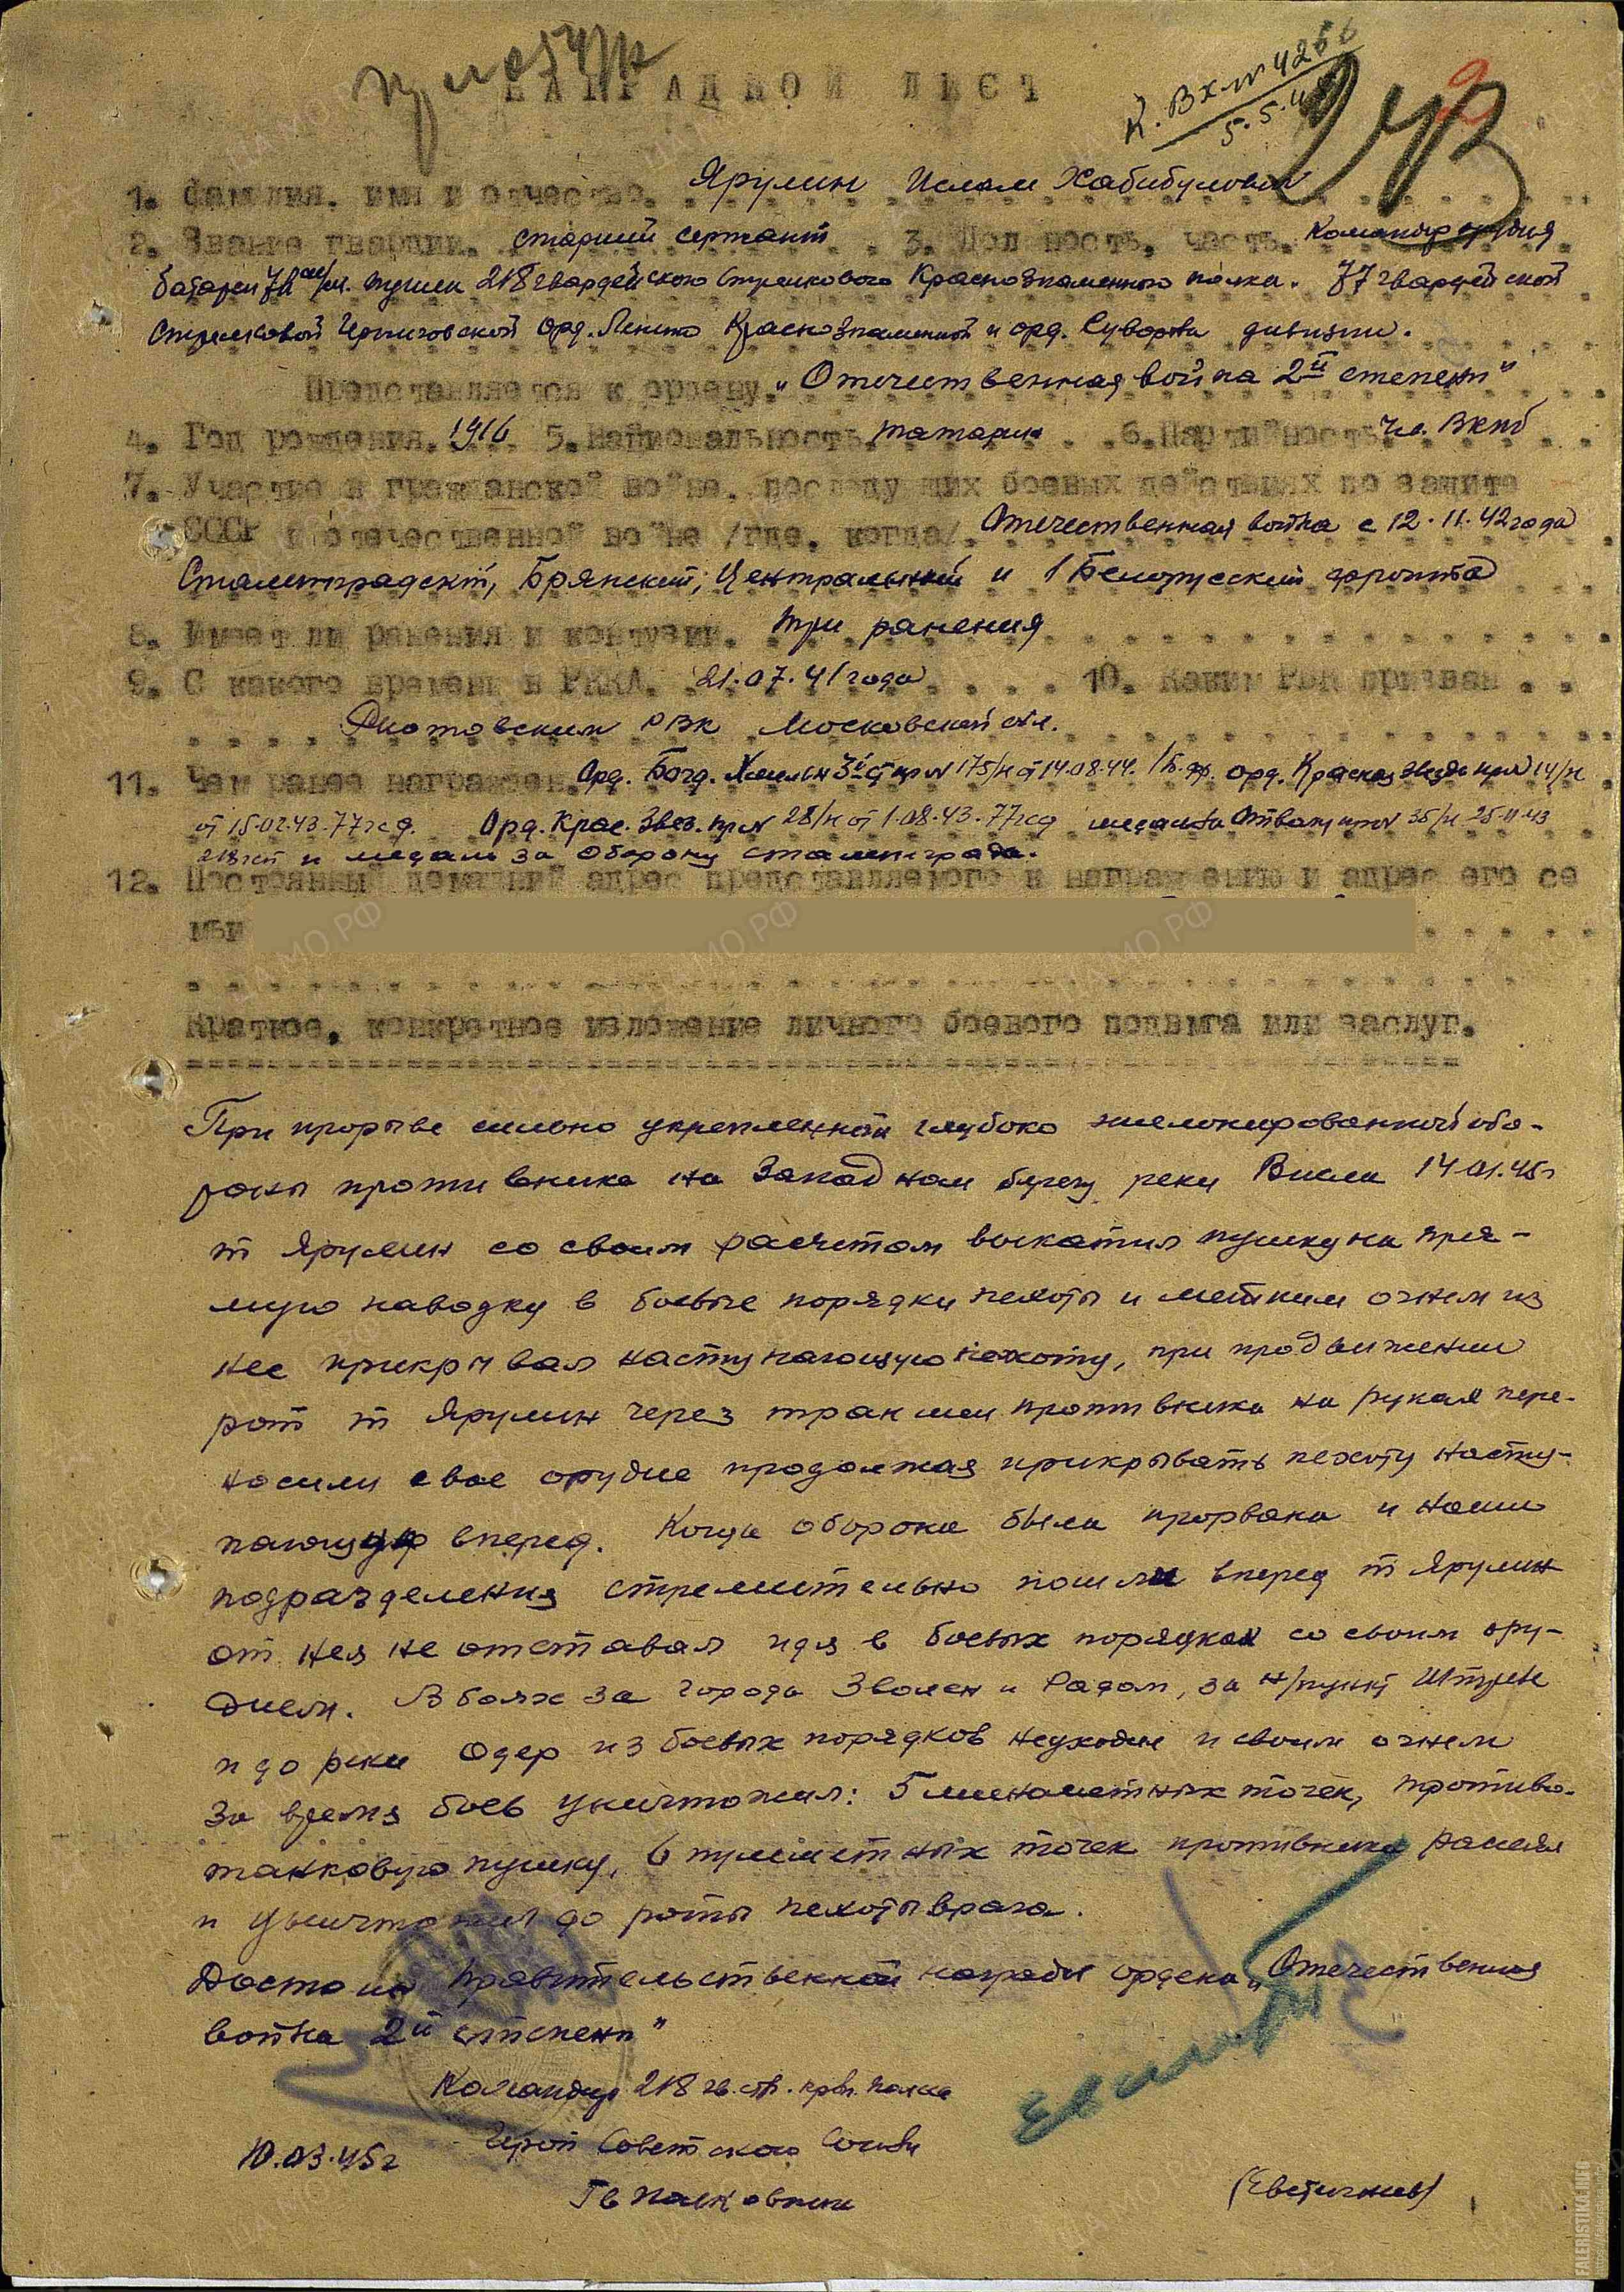 К. Вх № 4256
5.5.45
243
2
пр № 54/н
НАГРАДНОЙ ЛИСТ
1. Фамилия, имя и отчество. Ярулин Ислам Хабибулович
2. Звание гвардии. старший сержант 3. Должность, часть. Командир орудия
батареи 76 мм. пушек 218 гвардейского стрелкового Краснознаменного полка. 77 гвардейской
стрелковой Черниговской орд. Ленина Краснознаменной и орд. Суворова дивизии.
Представляется к ордену „Отечественная война 2й степени"
4. Год рождения. 1916 5. Национальность. татарин 6. Партийность. Чл. ВКПб
7. Участие в гражданской войне, последующих боевых действиях по защите
СССР и отечественной войне /где, когда/. Отечественная война с 12.11.42 года
Сталинградский, Брянский, Центральный и 1 Белорусский фронта
8. Имеет ли ранения и контузии. три ранения
9. С какого времени в РККА. 21.07.41 года 10. Каким РВК призван
РВК Московской обл.
11. Чем ранее награжден. Орд. Богд. Хмельн 3й ст пр № 175/н от 14.08.44. 1 Б.ф. орд. Красная звезда пр № 14/н
от 15.02.43. 77 гсд. Орд. Крас. Звез. пр № 28/н от 1.08.43. 77 гсд медаль За Отвагу пр № 35/н 25.11.43
218 гсп и медаль за оборону сталинграда.
12. Постоянный домашний адрес представляемого к награждению и адрес его се
мьи
Краткое, конкретное изложение личного боевого подвига или заслуг.
При прорыве сильно укрепленной глубоко эшелонированной обо-
роны противника на Западном берегу реки Висла 14.01.45г
т Ярулин со своим расчетом выкатил пушку на пря-
мую наводку в боевые порядки пехоты и метким огнем из
нее прикрывал наступающую пехоту, при продвижении
рот т Ярулин через траншеи противника на руках пере-
носили свое орудие продолжая прикрывать пехоту насту-
пающую вперед. Когда оборона была прорвана и наши
подразделения стремительно пошли вперед т Ярулин
от нея не отставал идя в боевых порядках со своим ору-
дием. В боях за города Зволен и Радом, за н/пункт
и до реки Одер из боевых порядков неуходил и своим огнем
за время боев уничтожил: 5 минометных точек, противо-
танковую пушку, 6 пулеметных точек противника рассеял
и уничтожил до роты пехоты врага.
Достоин правительственной награды ордена „Отечественная
война 2й степени"
Командир 218 гв. стр. крзн. полка
Герой Советского Союза
10.03.45г
Гв Полковник
(Евстигнеев)
ЦА МО РФ
FALERISTIKA.INFO